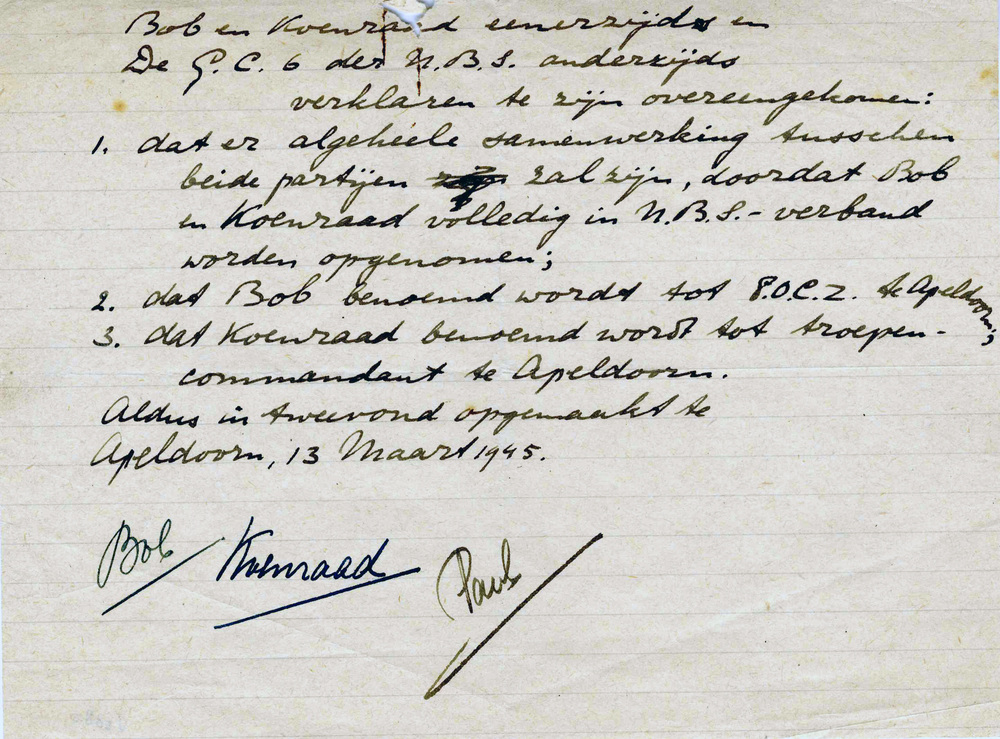 Bob en Koenraad eenerzijds en
De G.C. 6 der N.B.S. anderzijds
verklaren te zijn overeengekomen:
1. dat er algeheele samenwerking tusschen
beide partijen zal zijn, doordat Bob
en Koenraad volledig in N.B.S.- verband
worden opgenomen;
2. dat Bob benoemd wordt tot P.O.C. 2. te Apeldoorn;
3. dat Koenraad benoemd wordt tot troepen-
commandant te Apeldoorn.
Aldus in tweevoud opgemaakt te
Apeldoorn, 13 Maart 1945.
Bob Koenraad Paul